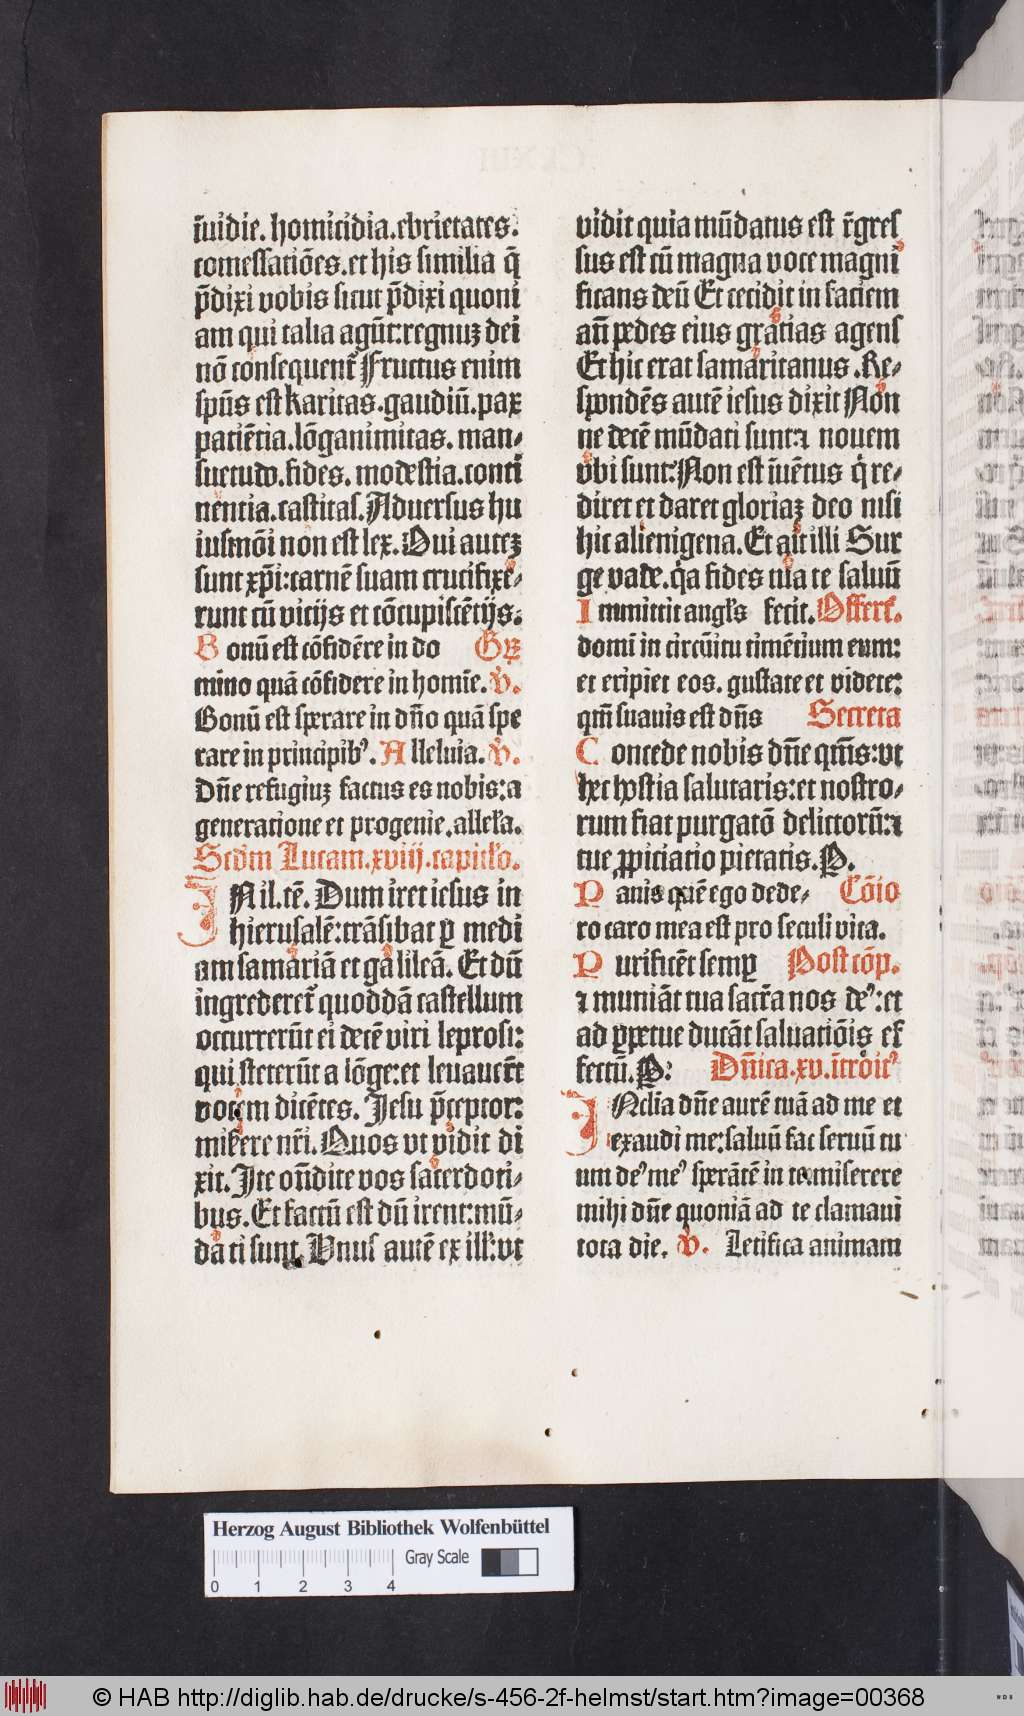 ĩuidie. homicidia.ebrietates.
comessatiões.et his similia q̃
p̃dixi vobis sicut p̃dixi quoni
am qui talia agũt:regnuz dei
nõ consequent̃ Fructus enim
sp̃us est karitas.gaudiũ.pax
patiẽtia.lõganimitas. man⸗
suetudo.fides. modestia.conti
nẽntia.castitas.Adversus hu
iusmõi non est lex. Qui autez
sunt xp̃i:carnẽ suam crucifixe⸗
runt cũ vicijs et cõcupiscẽtijs.
Bonũ est cõfidẽre in do Gꝝ
mino quã cõfidere in homĩe. ṽ.
Bonũ est sperare in dño quã spe
rare in principibꝰ. Alleluia. ṽ.
Dñe refugiuz factus es nobis:a
generatione et progenie.allel'a.
Scd̃m Lucam.xviij.capitl'o.
IN il.tẽ. Dum iret iesus in
hierusalẽ:trãsibat ꝑ medi
am samariã et galileã. Et dũ
ingrederet̃ quoddã castellum
occurrerũt ei decẽ viri leprosi:
qui steterũt a lõge:et levauerũt
vocem dicẽtes. Jesu p̃ceptor:
miserere nr̃i. Quos vt vidit di
xit. Ite oñdite vos sacerdoti⸗
bus. Et factũ est dũ irent:mũ⸗
dati sunt. Vnus autẽ ex ill':vt
vidit quia mũdatus est r̃gres
sus est cũ magna voce magni
ficans deũ Et cecidit in faciem
añ pedes eius gratias agens
Et hic erat samaritanus .Re⸗
spondẽs autẽ iesus dixit Non
ne decẽ mũdati sunt:⁊ novem
vbi sunt:Non est ĩuẽtus q̇ re⸗
diret et daret gloriaz deo nisi
hic alienigena.Et ait illi Sur
ge vade. q̇a fides tua te saluũ
Immittit angl's fecit. Offert̃.
domĩ in circũitu timẽtium eum:
et eripiet eos. gustate et videte:
qm̃ suauis est dñs Secreta
Concede nobis dñe qm̃s:vt
hec hostia salutaris:et nostro⸗
rum fiat purgatõ delictorũ:⁊
tue ꝓpiciatio pietatis. P.
Panis quẽ ego dede⸗ Cõio
ro caro mea est pro seculi vita.
Purificẽt semꝑ Post cõp.
⁊ muniãt tua sacr̃a nos deꝰ:et
ad ꝑpetue ducãt saluatiõis ef
fectũ. P: Dñica.xv.ĩtroitꝰ
INclia dñe aurẽ tuã ad me et
exaudi me:saluũ fac seruũ tu
um deꝰ meꝰ sperãtẽ in te:miserere
mihi dñe quoniã ad te clamaui
tota die. ṽ. Letifica animam
Herzog August Bibliothek Wolfenbüttel
Gray Scale
0 1 2 3 4
© HAB http://diglib.hab.de/drucke/s-456-2f-helmst/start.htm?image=00368